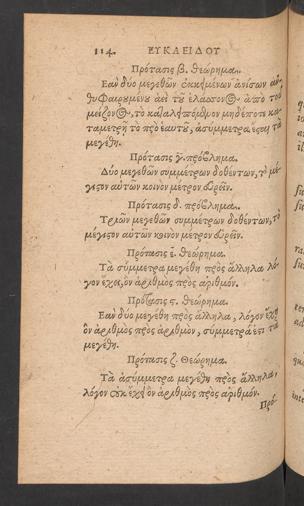 114 ΕΥΚΛΕΙΔΟΥ
Πρότασις β. θεώρημα.
Εὰν δύο μεγεθῶν ἐκκειμένων ἀνίσων ἀν-
θυφαιρουμένου ἀεὶ τοῦ ἐλάσσονος ἀπὸ τοῦ
μείζονος, τὸ καταλειπόμενον μηδέποτε κα-
ταμετρῇ τὸ πρὸ ἑαυτοῦ, ἀσύμμετρα ἔσται τὰ
μεγέθη.
Πρότασις γ. πρόβλημα.
Δύο μεγεθῶν συμμέτρων δοθέντων, τὸ μέ-
γιστον αὐτῶν κοινὸν μέτρον εὑρεῖν.
Πρότασις δ. πρόβλημα.
Τριῶν μεγεθῶν συμμέτρων δοθέντων, τὸ
μέγιστον αὐτῶν κοινὸν μέτρον εὑρεῖν.
Πρότασις ε. θεώρημα.
Τὰ σύμμετρα μεγέθη πρὸς ἄλληλα λό-
γον ἔχει, ὃν ἀριθμὸς πρὸς ἀριθμόν.
Πρότασις ς. θεώρημα.
Εὰν δύο μεγέθη πρὸς ἄλληλα, λόγον ἔχῃ
ὃν ἀριθμὸς πρὸς ἀριθμὸν, σύμμετρά ἐστι τὰ
μεγέθη.
Πρότασις ζ. Θεώρημα.
Τὰ ἀσύμμετρα μεγέθη πρὸς ἄλληλα,
λόγον οὐκ ἔχει ὃν ἀριθμὸς πρὸς ἀριθμόν.
Πρό-